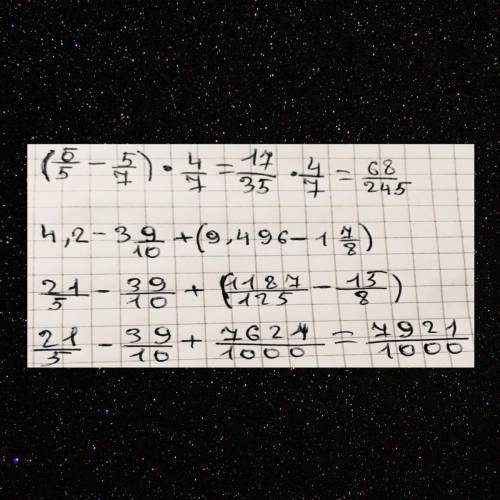 (6/5 − 5/7) · 4/7 = 17/35 · 4/7 = 68/245
4,2 − 3 9/10 + (9,496 − 1 7/8)
21/5 − 39/10 + (1187/125 − 15/8)
21/5 − 39/10 + 7621/1000 = 7921/1000